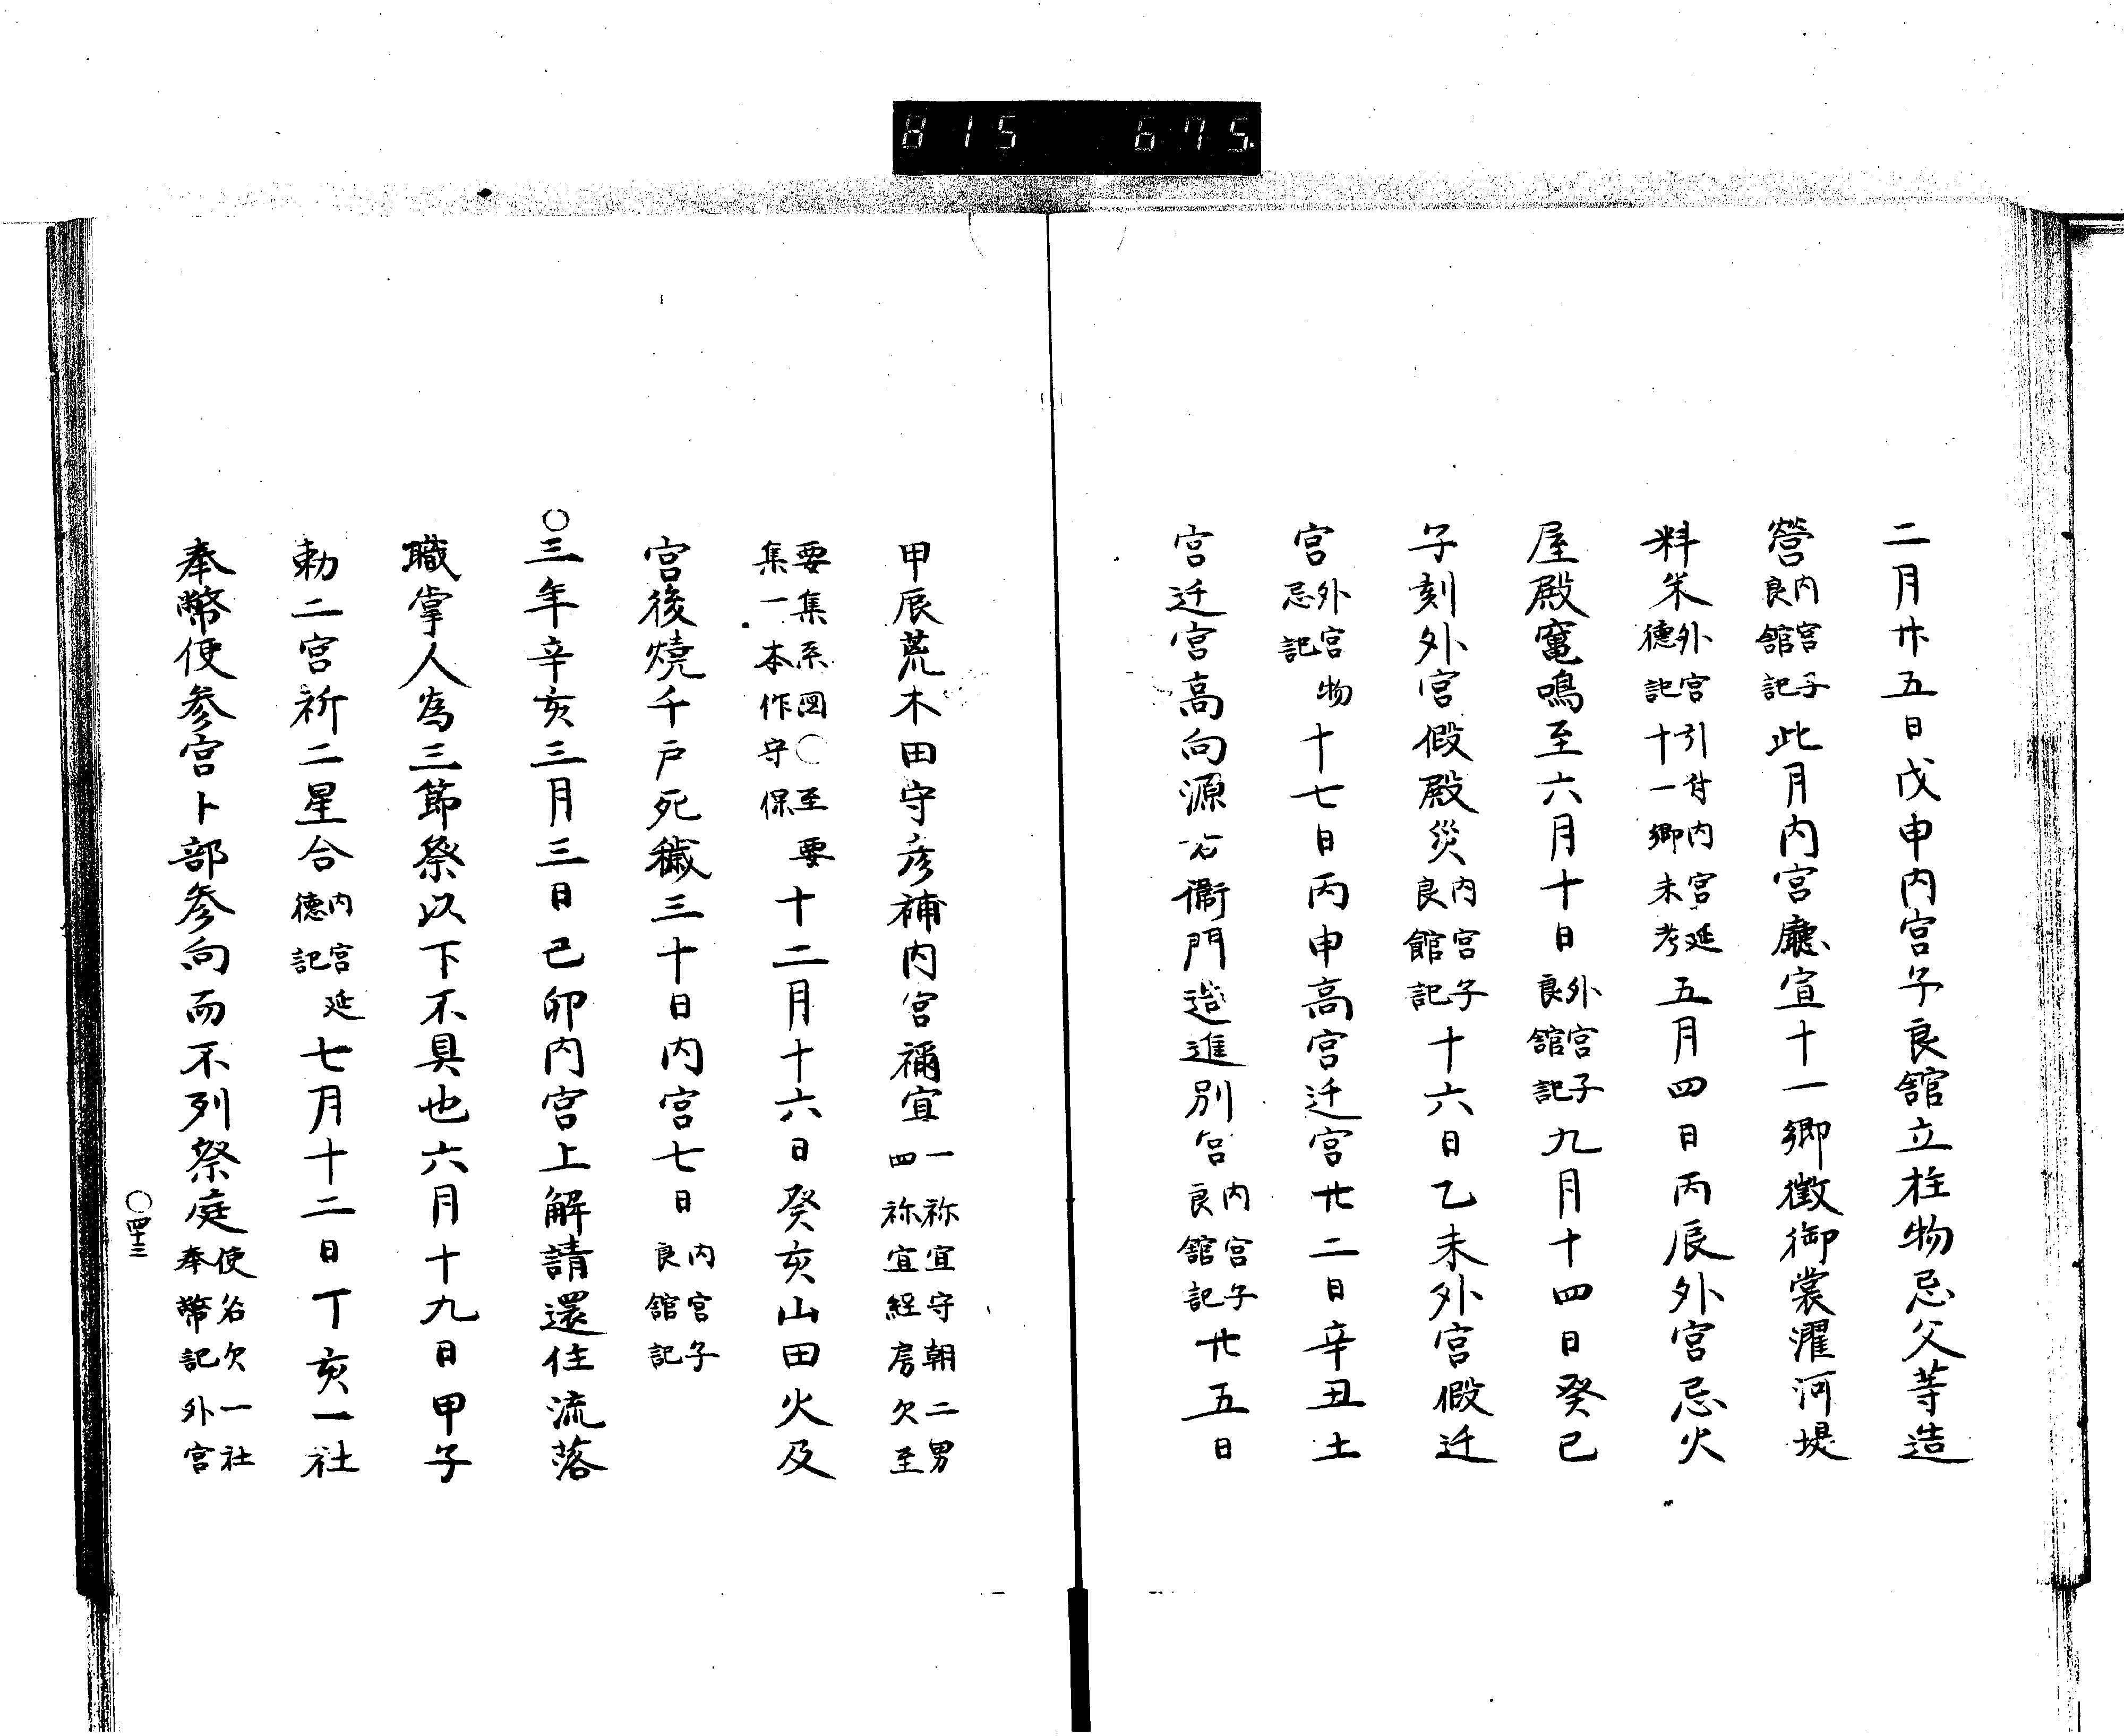 815 675.
二月廿五日戊申内宮子良舘立柱物忌父等造
營内宮子良舘記此月内宮廳宣十一鄉徵御裳濯河堤
料米外宮引付内宮延德記十一鄉未考五月四日丙辰外宮忌火
屋殿竃鳴至六月十日外宮子良舘記九月十四日癸巳
子刻外宮假殿災内宮子良館記十六日乙未外宮假迁
宮外宮物忌記十七日丙申高宮迁宮廿二日辛丑土
宮迁宮高向源右衛門造進別宮内宮子良舘記廿五日
甲辰荒木田守彦補内宮禰宜一祢宜守朝二男四祢宜経房欠至
要集系図〇至要集一本作守保十二月十六日癸亥山田火及
宮後燒千戸死穢三十日内宮七日内宮子良舘記
〇三年辛亥三月三日己卯内宮上解請還住流落
職掌人為三節祭以下不具也六月十九日甲子
勅二宮祈二星合内宮延德記七月十二日丁亥一社
奉幣使参宮卜部参向而不列祭庭使名欠一社奉幣記外宮
〇四十三